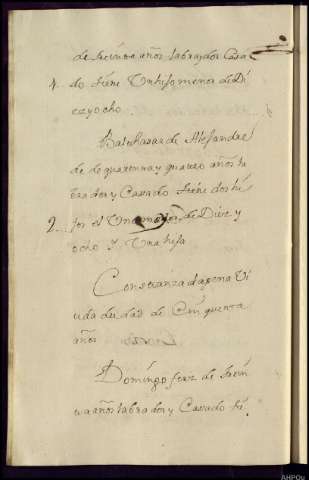 de treinta años labrador Casa
4. do tiene Un hijo menor de Di
ezyocho.
Balthasar de Alejandre
de de quarenna y quatro años la
brador y Cassado tiene dos hi
2. jos el Uno maior de Diez y
ocho Y Una hija
Constanza dapena Vi
uda de edad de Cinquenta
años
Domingo ferz de trein
ta años labrador y Cassado ti.
AHPOu